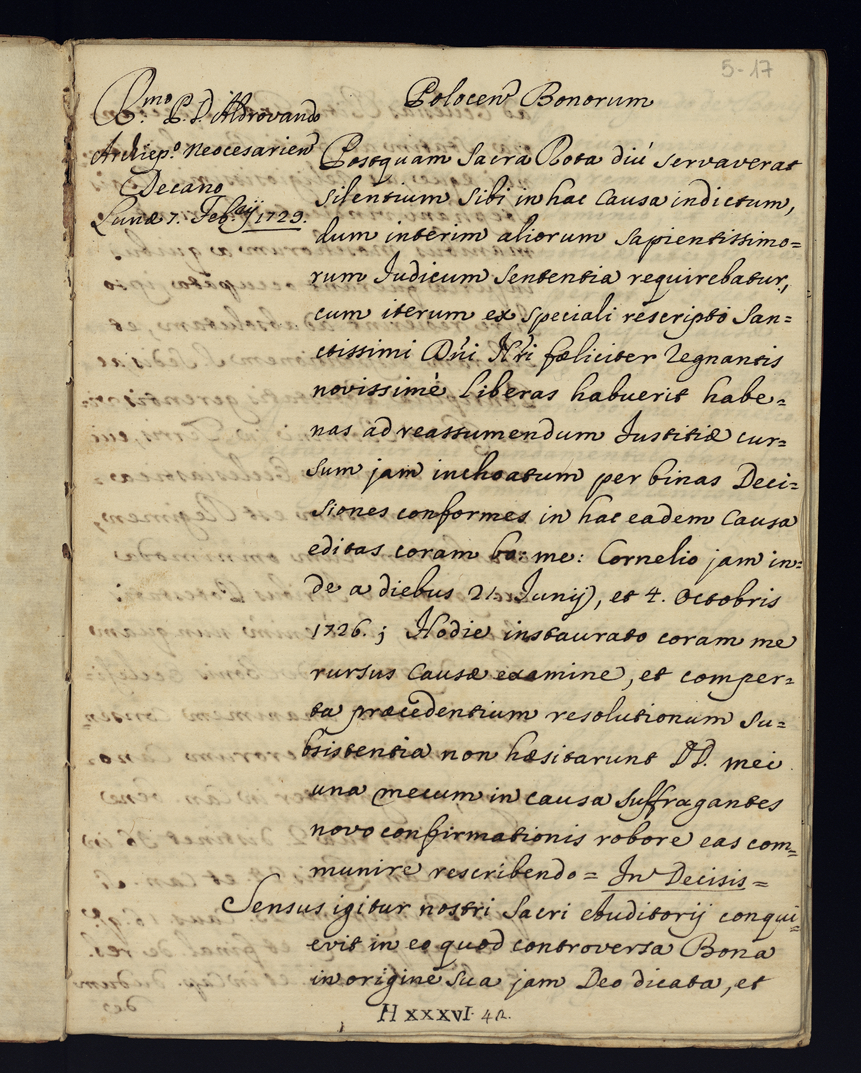 5-17
Polocen. Bonorum
R.mo P. D. Aldrovando
Archiep.o Neocesarien.
Decano
Lunæ 7. Feb.rij 1729.
Postquam Sacra Rota diú servaverat
silentium sibi in hac causa indictum,
dum interim aliorum sapientissimo=
rum Judicum sententia requirebatur,
cum iterum ex speciali rescripto San=
ctissimi Dñi Ñri fæliciter regnantis
novissimè liberas habuerit habe=
nas ad reassumendum Justitiæ cur=
sum jam inchoatum per binas Deci=
siones conformes in hac eadem Causa
editas coram bo: me: Cornelio jam in=
de a diebus 21. Junij, et 4. Octobris
1726.; Hodie instaurato coram me
rursus causæ examine, et comper=
ta præcedentium resolutionum su=
bsistentia non hæsitarunt DD. mei
una mecum in causa suffragantes
novo confirmationis robore eas com=
munire rescribendo = In Decisis =
Sensus igitur nostri Sacri Auditorij conqui=
evit in eo quod controversa Bona
in origine sua jam Deo dicata, et
H XXXVI. 42.